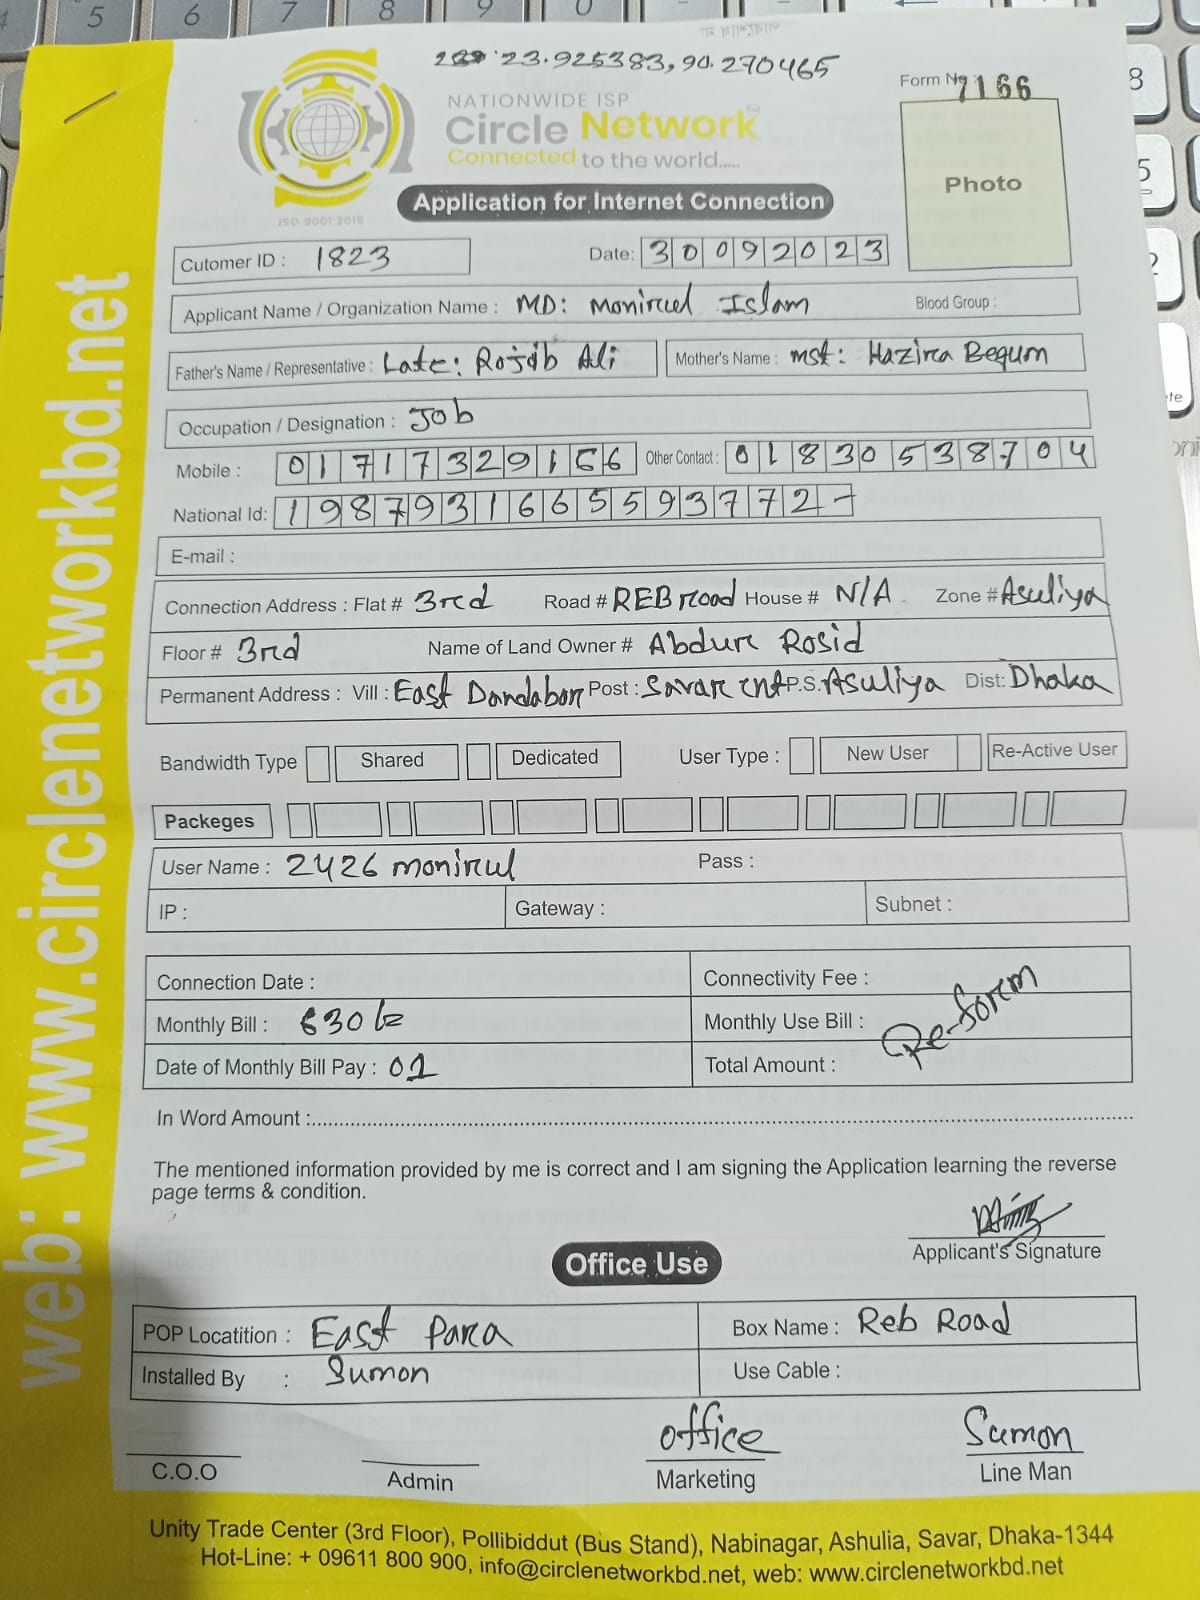 23.925383, 90.270465
Form No 7166
NATIONWIDE ISP
Circle Network
Connected to the world.....
ISO 9001:2015
Photo
Application for Internet Connection
Cutomer ID : 1823
Date: 30092023
Applicant Name / Organization Name : MD: Monirul Islam Blood Group :
Father's Name / Representative : Late: Rojab Ali Mother's Name : Mst: Hazira Begum
Occupation / Designation : Job
Mobile : 01717329166 Other Contact : 01830538704
National Id: 1987931665593772-
E-mail :
Connection Address : Flat # 3rd Road # REB Road House # N/A Zone # Asuliya
Floor # 3rd Name of Land Owner # Abdur Rosid
Permanent Address : Vill : East Dandabor Post : Savar cnt P.S. Asuliya Dist: Dhaka
Bandwidth Type Shared Dedicated User Type : New User Re-Active User
Packeges
User Name : 2426 monirul Pass :
IP : Gateway : Subnet :
Connection Date : Connectivity Fee :
Monthly Bill : 630 Monthly Use Bill :
Re-Form
Date of Monthly Bill Pay : 01 Total Amount :
In Word Amount :
The mentioned information provided by me is correct and I am signing the Application learning the reverse
page terms & condition.
Applicant's Signature
Office Use
POP Locatition : East Para Box Name : Reb Road
Installed By : Sumon Use Cable :
office Sumon
C.O.O Admin Marketing Line Man
Unity Trade Center (3rd Floor), Pollibiddut (Bus Stand), Nabinagar, Ashulia, Savar, Dhaka-1344
Hot-Line: + 09611 800 900, info@circlenetworkbd.net, web: www.circlenetworkbd.net
web: www.circlenetworkbd.net